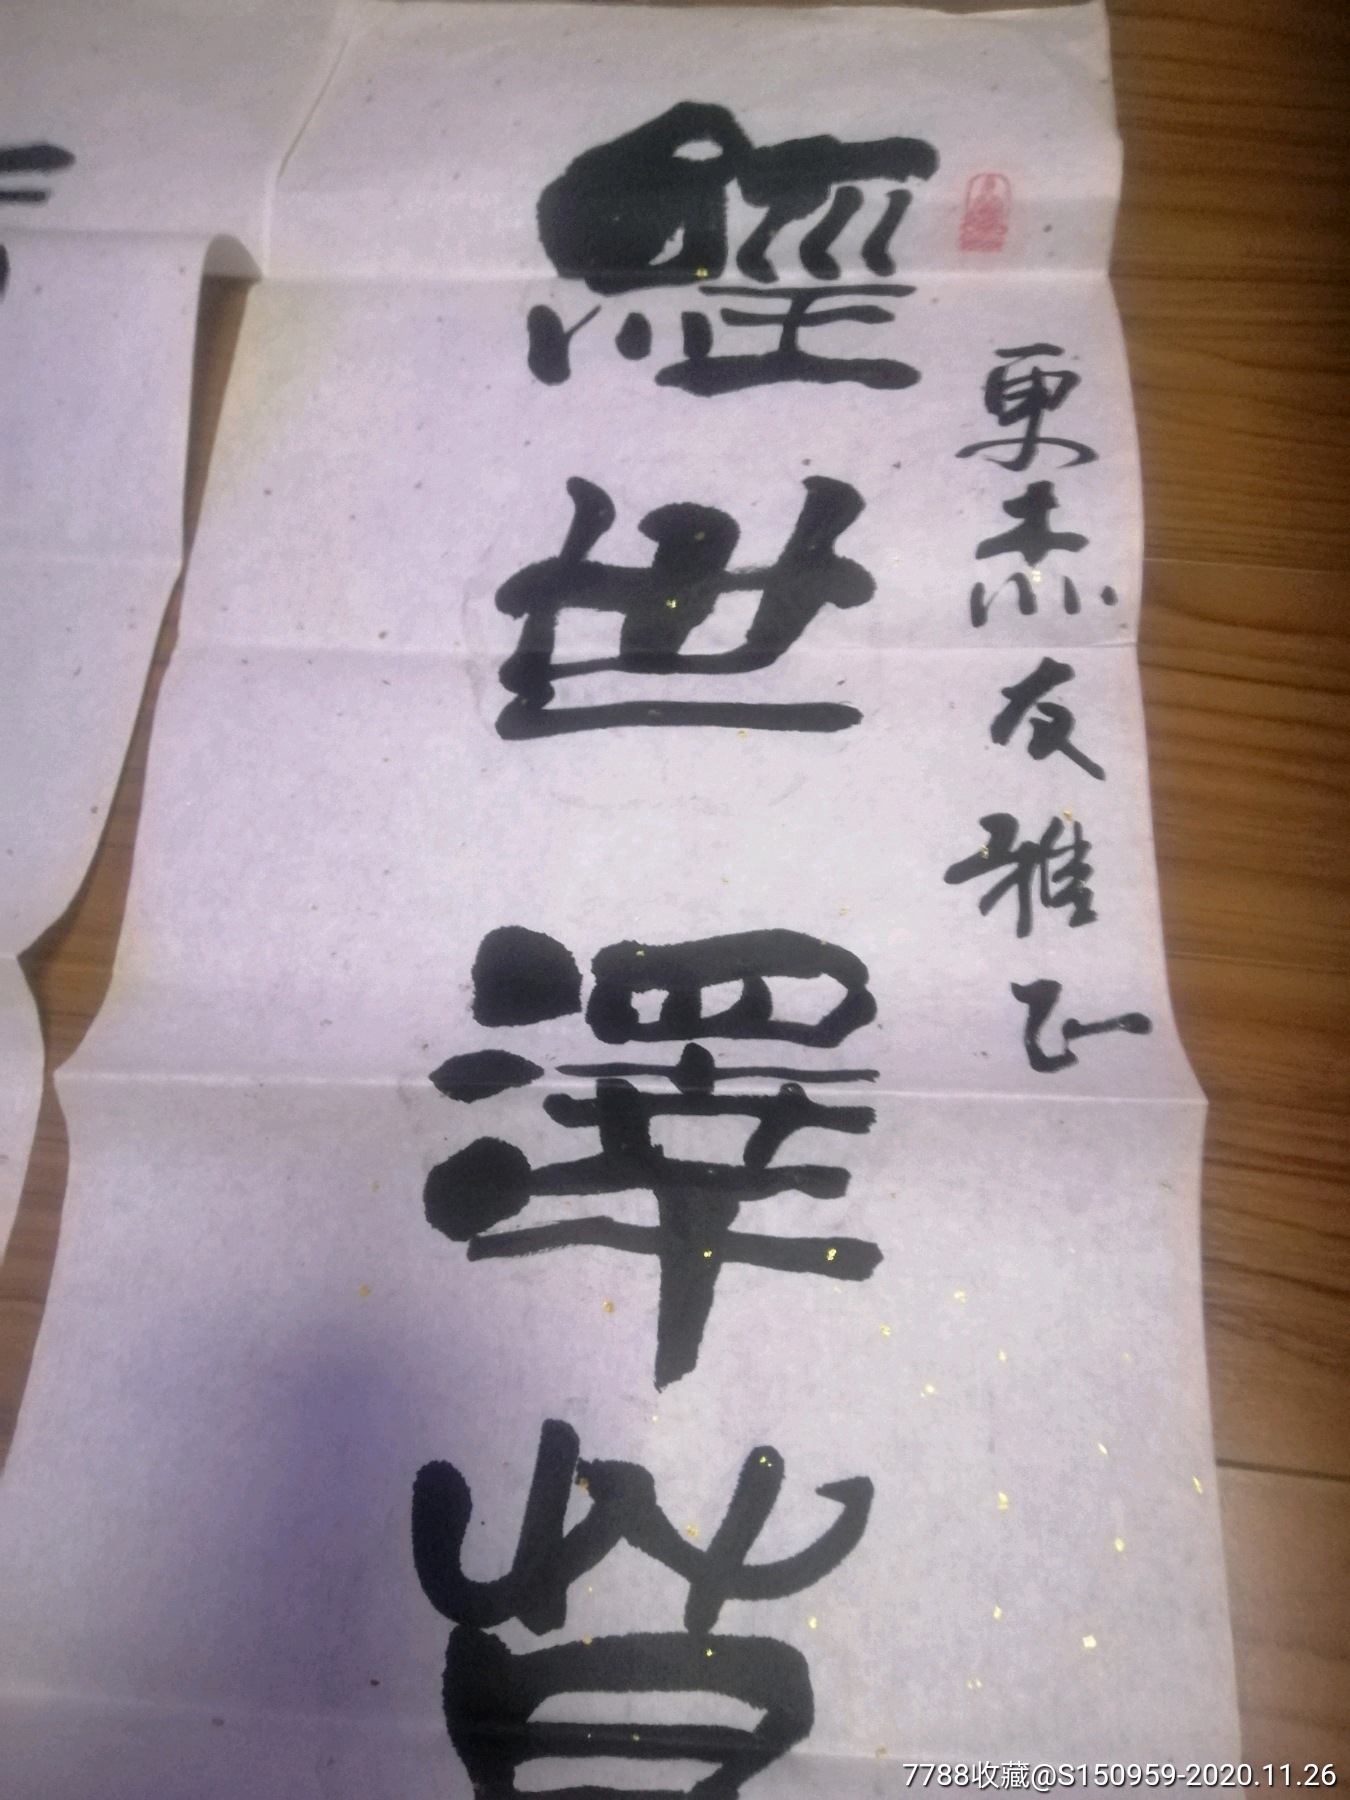 杰友雅正
經世澤
7788收藏@S150959-2020.11.26